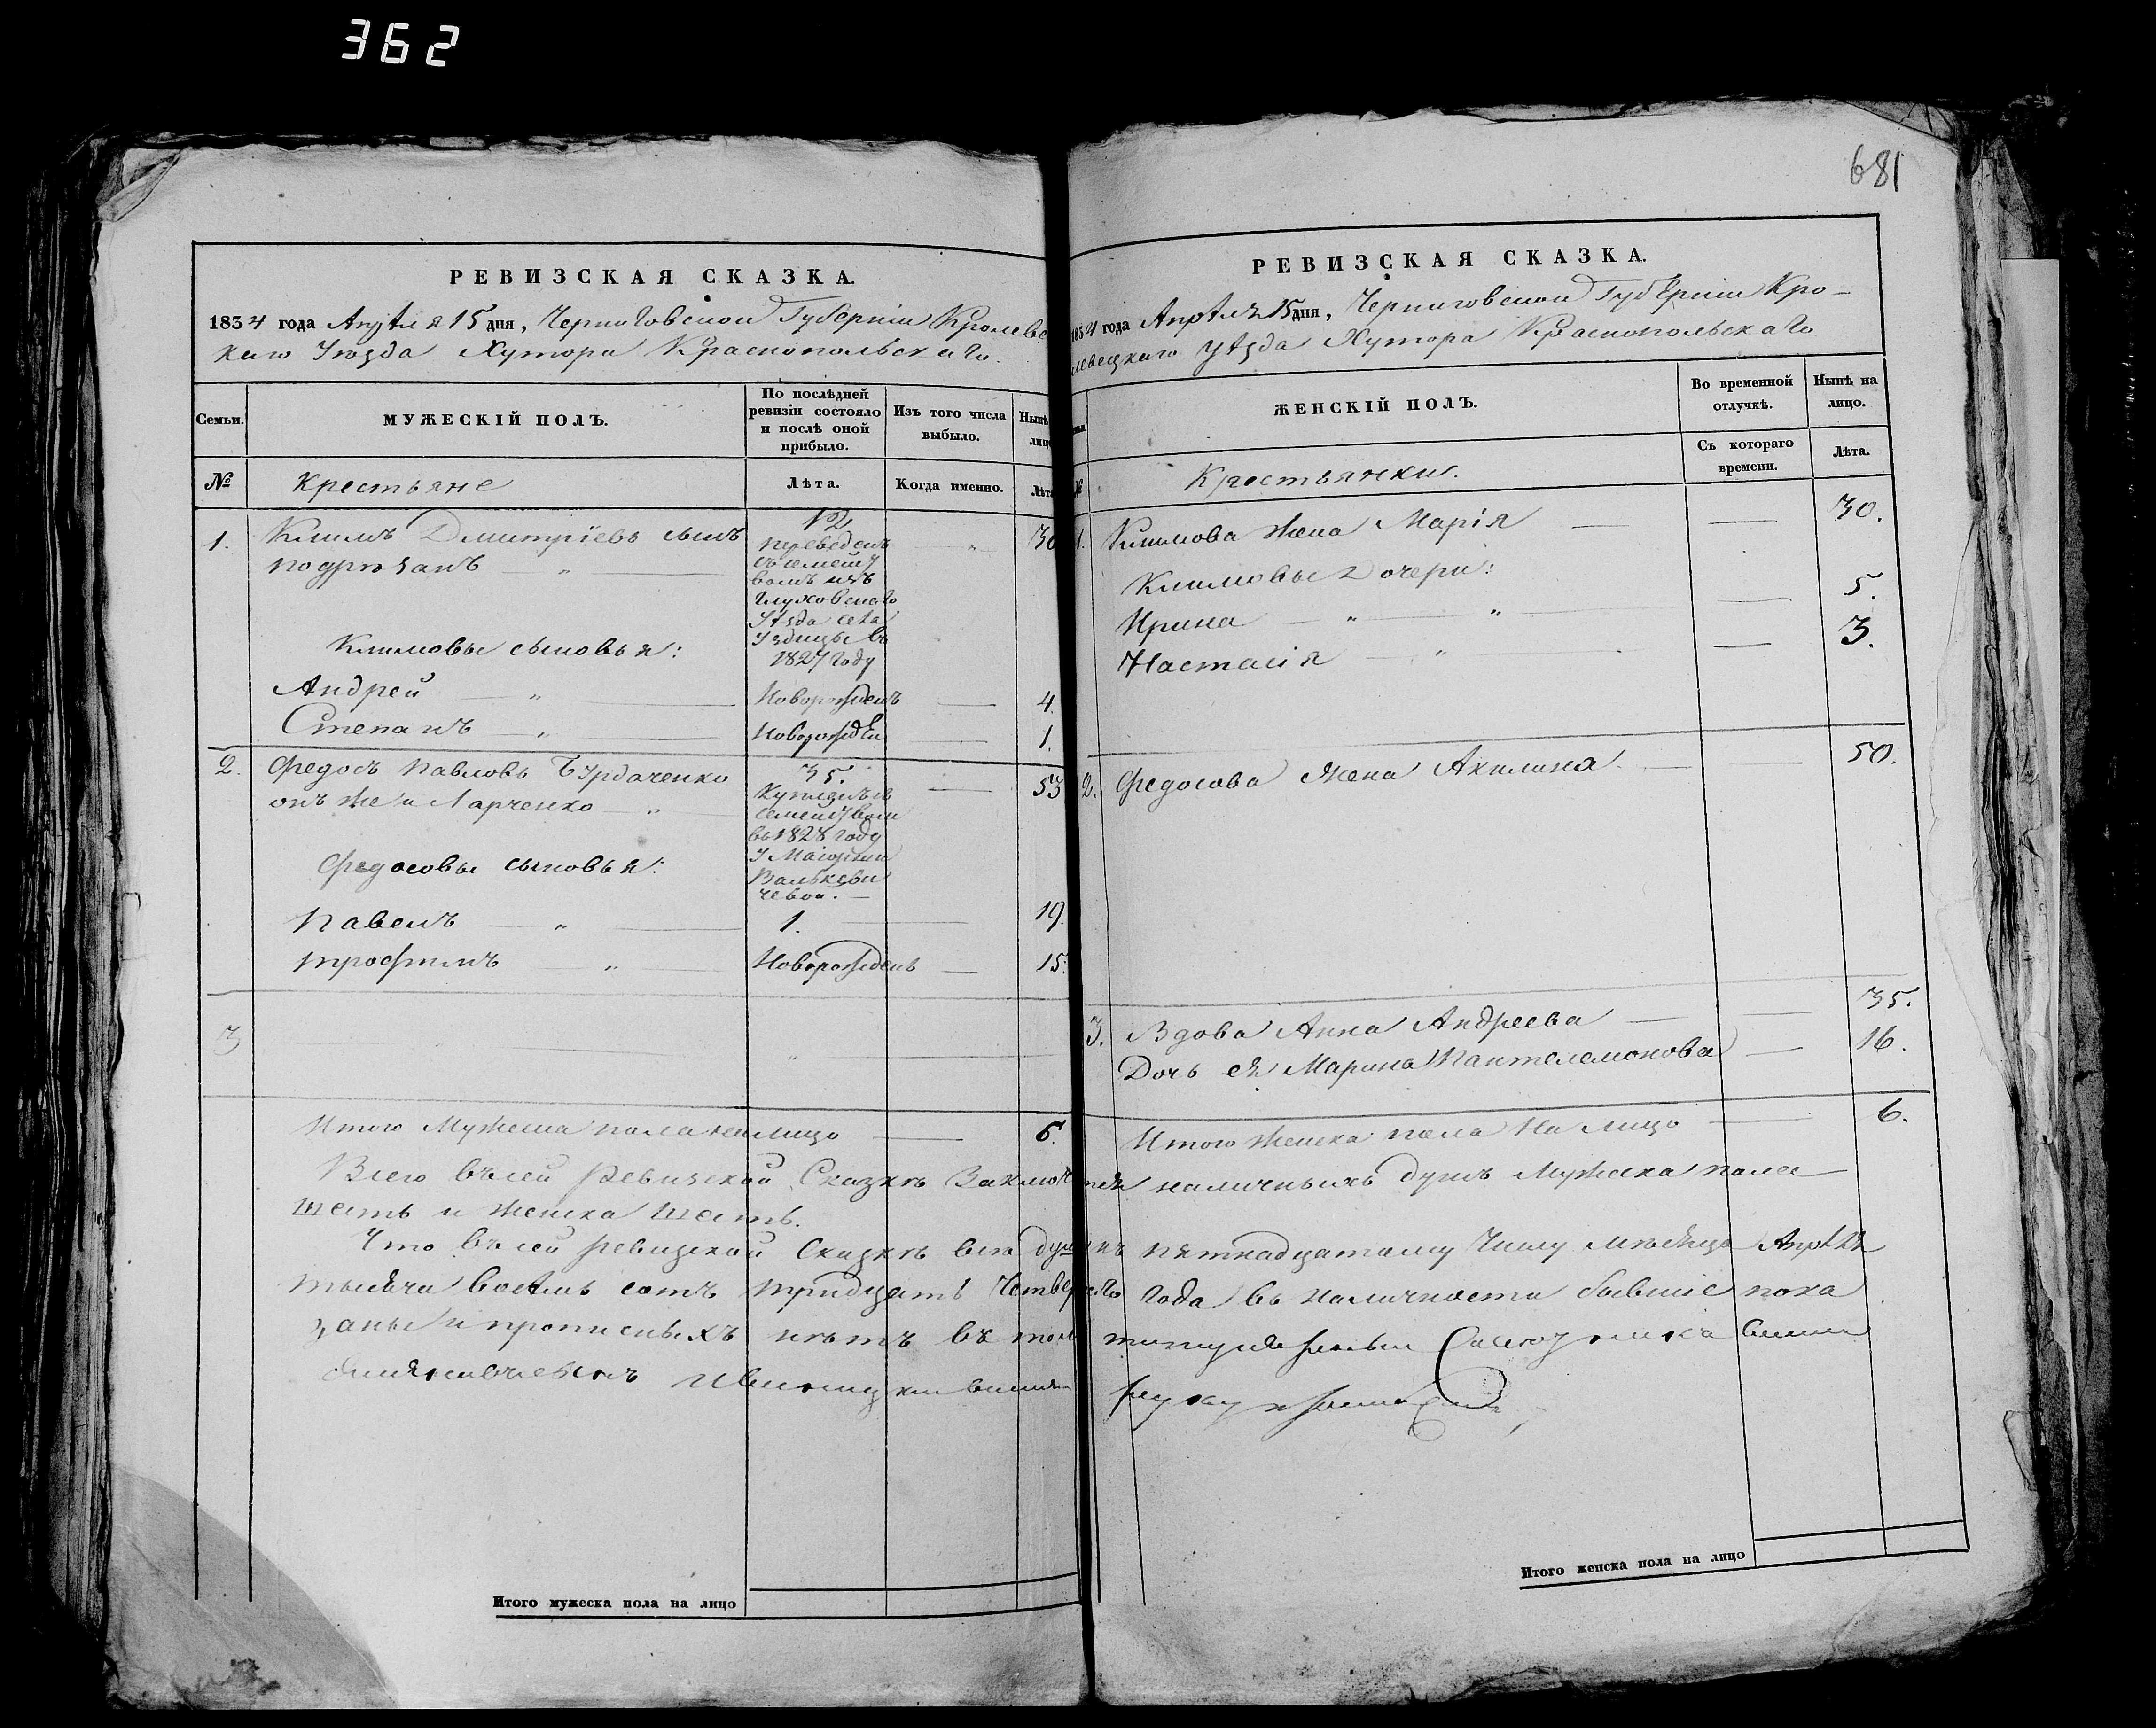 362
681
РЕВИЗСКАЯ СКАЗКА.
1834 года Апрѣля 15 дня, Черниговской Губерніи Кролевец
каго Уѣзда Хутора Краснопольскаго.
Семьи.
МУЖЕСКІЙ ПОЛЪ.
По послѣдней ревизіи состояло и послѣ оной прибыло.
Изъ того числа выбыло.
Нынѣ
лицо
№
Крестьяне
Лѣта.
Когда именно.
Лѣта
1. Климъ Дмитріевъ сынъ 12 30
переведенъ
съ семейст
вомъ изъ
Глуховскаго
Уѣзда села
Уздицы въ
1827 году
Климовы сыновья:
Андрей Новорожденъ 4.
Степанъ Новорожден 1.
2. Федосъ Павловъ Бурдаченко 35. 53
онъ же и Ларченко
Купленъ съ
семействомъ
въ 1828 году
У Маіорши
Валькеви
чевой.
Федосовы сыновья:
Павелъ 1. 19.
Трофимъ Новорожденъ 15.
3
Итого Мужеска пола на лицо 6.
РЕВИЗСКАЯ СКАЗКА.
1834 года Апрѣля 15 дня, Черниговской Губерніи Кро-
левецкаго Уѣзда Хутора Краснопольскаго
ЖЕНСКІЙ ПОЛЪ.
Во временной отлучкѣ.
Нынѣ на лицо.
Съ котораго времени.
Лѣта.
№
Крестьянки.
1. Климова жена Марія 30.
Климовы дочери:
Ирина 5.
Настасія 3.
2. Федосова жена Акилина 50.
3. Вдова Анна Андреева 35.
Дочь ея Марина Пантелемонова 16.
Итого женска пола на лицо 6.
Всего въ сей Ревизской Сказкѣ Заключается наличныхъ душъ Мужеска пола
шесть и женска шесть.
Что въ сей ревизской Сказкѣ всѣ души къ пятнадцатому Числу мѣсяца Апрѣля
тысяча восемь сотъ тридцать Четвертаго года въ наличности бывшіе пока
заны и прописныхъ нѣтъ въ томъ
руку
Итого мужеска пола на лицо
Итого женска пола на лицо